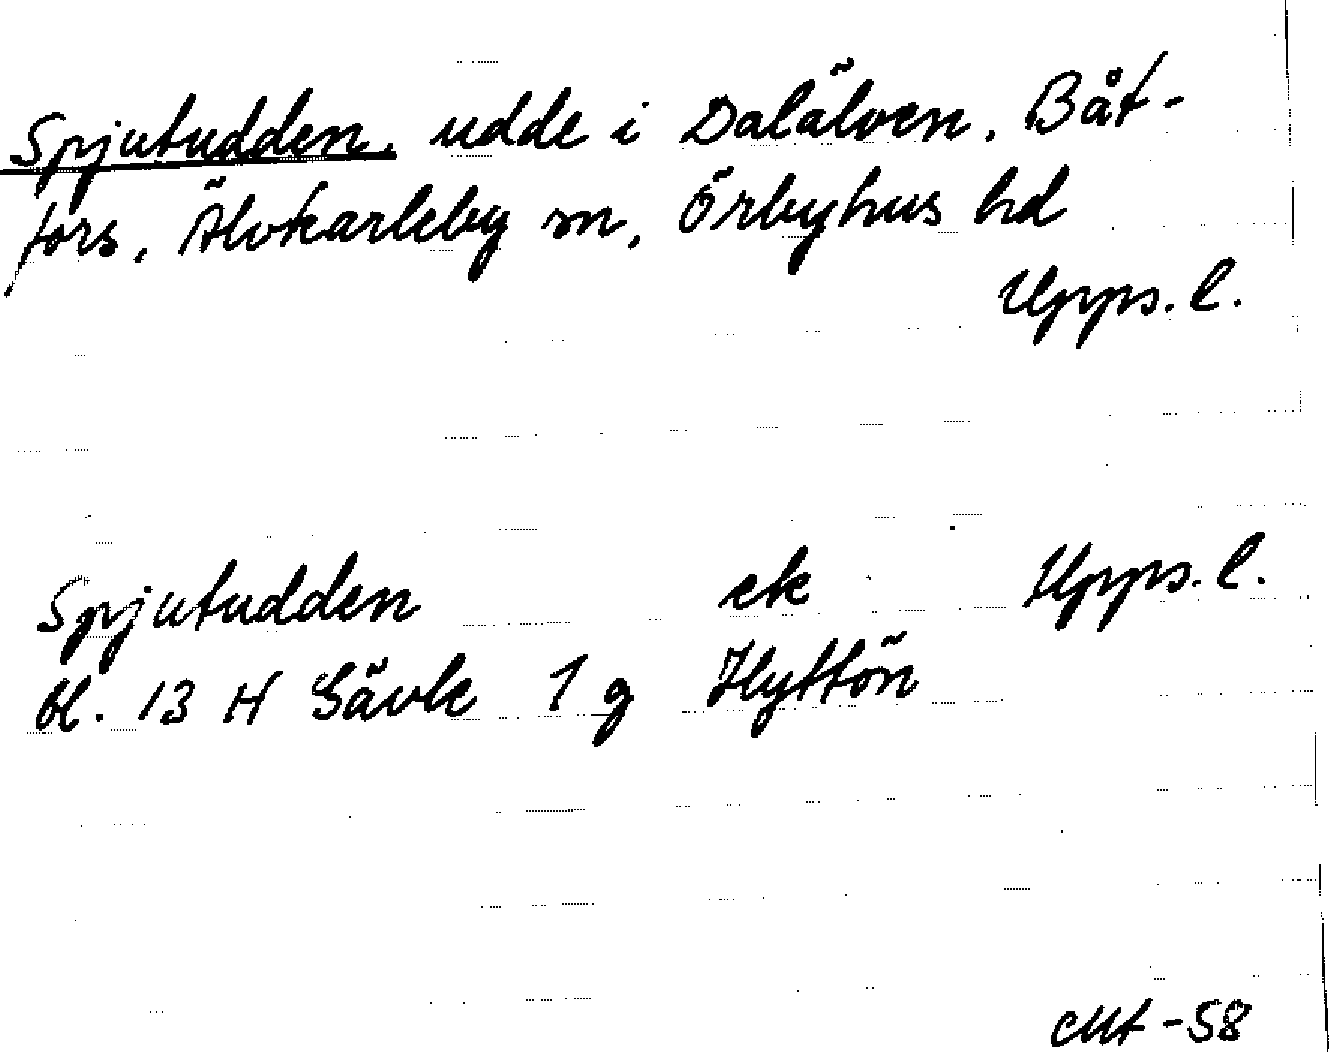 Spjutudden, udde i Dalälven, Båt-
fors, Älvkarleby sn, Örbyhus hd
Upps. l.
Spjutudden ek Upps. l.
bl. 13 H Gävle 1 g Hyttön
-58